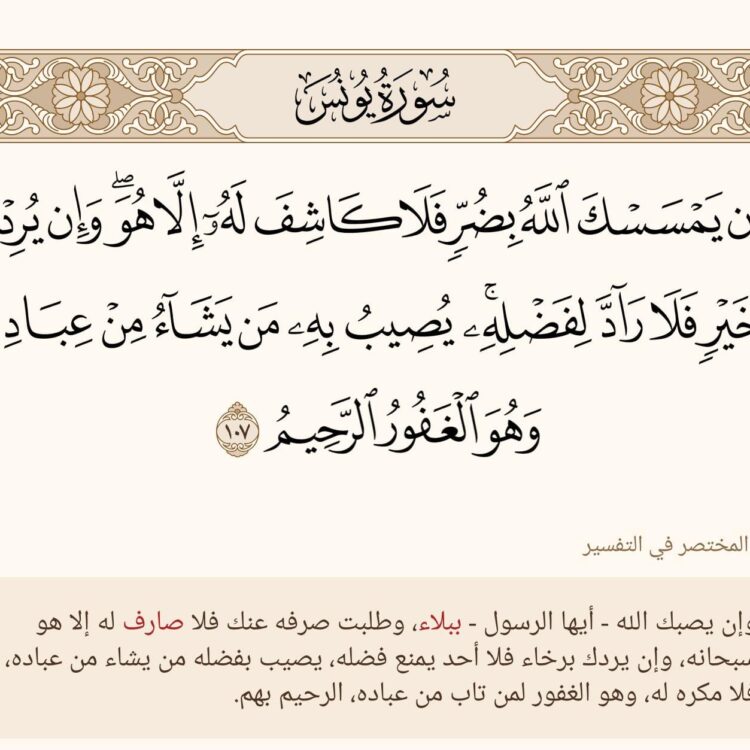 سُورَةُ يُونُسَ
يَمْسَسْكَ ٱللَّهُ بِضُرٍّ فَلَا كَاشِفَ لَهُۥٓ إِلَّا هُوَۖ وَإِن
فَلَا رَآدَّ لِفَضْلِهِۦۚ يُصِيبُ بِهِۦ مَن يَشَآءُ مِنْ
وَهُوَ ٱلْغَفُورُ ٱلرَّحِيمُ ١٠٧
المختصر في التفسير
وإن يصبك الله - أيها الرسول - ببلاء، وطلبت صرفه عنك فلا صارف له إلا هو
سبحانه، وإن يردك برخاء فلا أحد يمنع فضله، يصيب بفضله من يشاء من عباده،
فلا مكره له، وهو الغفور لمن تاب من عباده، الرحيم بهم.